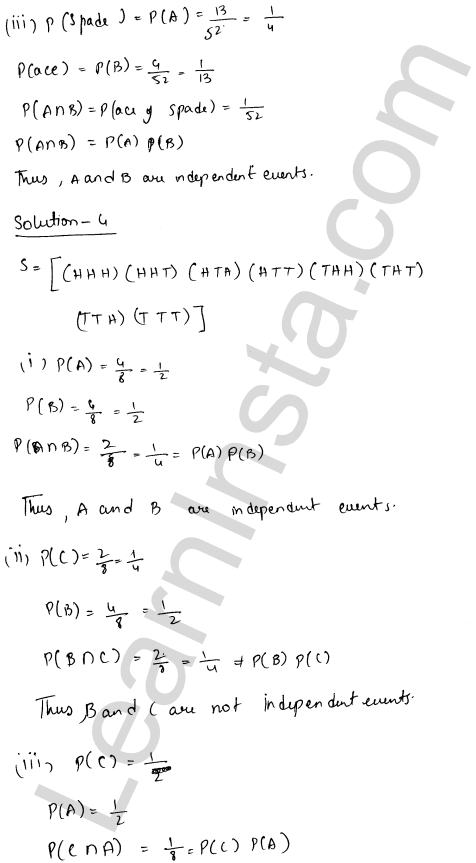 (iii) P(Spade) = P(A) = 13/52 = 1/4
P(ace) = P(B) = 4/52 = 1/13
P(A∩B) = P(ace of spade) = 1/52
P(A∩B) = P(A) P(B)
Thus, A and B are independent events.
Solution-4
S = [(HHH) (HHT) (HTH) (HTT) (THH) (THT)
(TTH) (TTT)]
(i) P(A) = 4/8 = 1/2
P(B) = 4/8 = 1/2
P(A∩B) = 2/8 = 1/4 = P(A) P(B)
Thus, A and B are independent events.
(ii) P(C) = 2/8 = 1/4
P(B) = 4/8 = 1/2
P(B∩C) = 2/8 = 1/4 ≠ P(B) P(C)
Thus, B and C are not independent events.
(iii) P(C) = 1/2
P(A) = 1/2
P(C∩A) = 1/8 = P(C) P(A)
LearnInsta.com